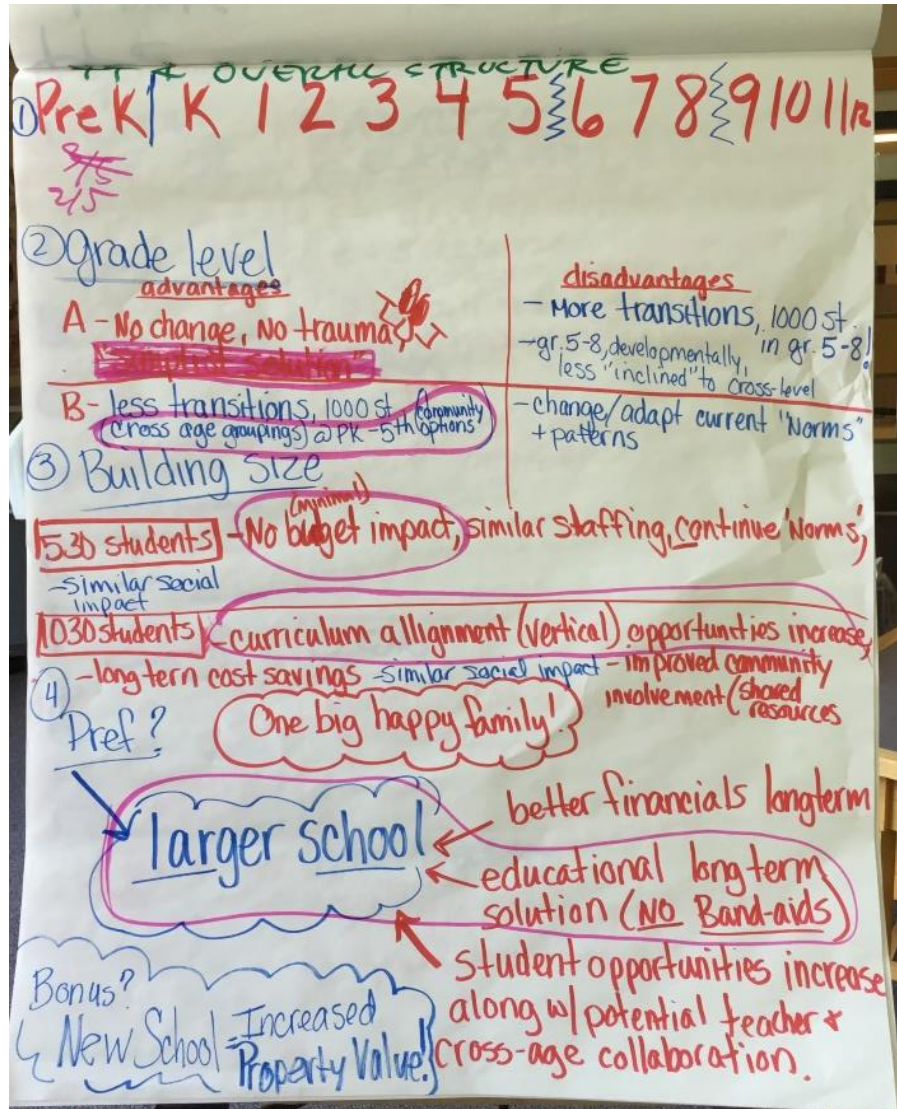 OVERALL STRUCTURE
① Pre K K 1 2 3 4 5 6 7 8 9 10 11 12
2/5
② Grade level
advantages
A - No change, No trauma
B - less transitions, 1000 st., community
(cross age groupings) @ PK - 5th options
disadvantages
- More transitions, 1000 st.
in gr. 5-8!
- gr. 5-8, developmentally,
less "inclined" to cross-level
- change/adapt current "Norms"
+ patterns
③ Building Size
(minimal)
530 students - No budget impact, similar staffing, continue 'Norms',
- similar social
impact
1030 students - curriculum allignment (vertical) opportunties increase,
- long term cost savings - similar social impact - improved community
involvement (shared
resources
④ Pref?
One big happy family!
larger school
better financials longterm
educational longterm
solution (NO Band-aids)
student opportunities increase
along w/ potential teacher &
cross-age collaboration.
Bonus?
New School = Increased
Property Value!